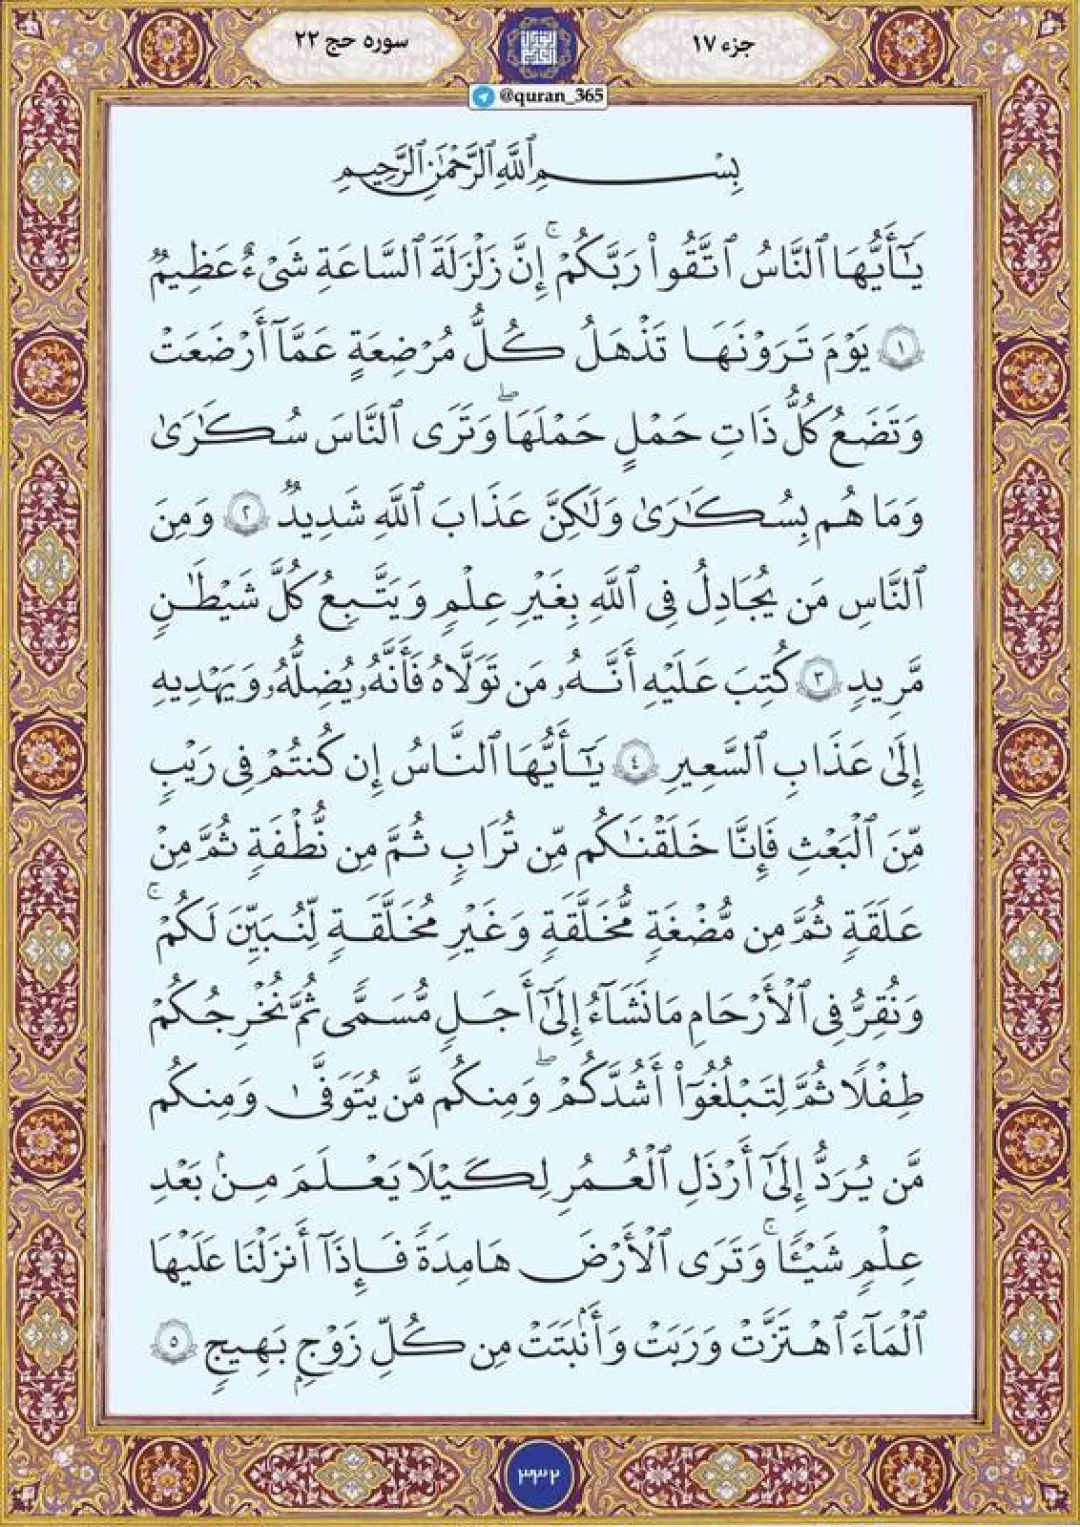 جزء ۱۷
سوره حج ۲۲
@quran_365
بِسْمِ ٱللَّهِ ٱلرَّحْمَٰنِ ٱلرَّحِيمِ
يَٰٓأَيُّهَا ٱلنَّاسُ ٱتَّقُوا۟ رَبَّكُمْ ۚ إِنَّ زَلْزَلَةَ ٱلسَّاعَةِ شَىْءٌ عَظِيمٌ
١ يَوْمَ تَرَوْنَهَا تَذْهَلُ كُلُّ مُرْضِعَةٍ عَمَّآ أَرْضَعَتْ
وَتَضَعُ كُلُّ ذَاتِ حَمْلٍ حَمْلَهَا ۖ وَتَرَى ٱلنَّاسَ سُكَٰرَىٰ
وَمَا هُم بِسُكَٰرَىٰ وَلَٰكِنَّ عَذَابَ ٱللَّهِ شَدِيدٌ ٢ وَمِنَ
ٱلنَّاسِ مَن يُجَادِلُ فِى ٱللَّهِ بِغَيْرِ عِلْمٍ وَيَتَّبِعُ كُلَّ شَيْطَٰنٍ
مَّرِيدٍ ٣ كُتِبَ عَلَيْهِ أَنَّهُۥ مَن تَوَلَّاهُ فَأَنَّهُۥ يُضِلُّهُۥ وَيَهْدِيهِ
إِلَىٰ عَذَابِ ٱلسَّعِيرِ ٤ يَٰٓأَيُّهَا ٱلنَّاسُ إِن كُنتُمْ فِى رَيْبٍ
مِّنَ ٱلْبَعْثِ فَإِنَّا خَلَقْنَٰكُم مِّن تُرَابٍ ثُمَّ مِن نُّطْفَةٍ ثُمَّ مِنْ
عَلَقَةٍ ثُمَّ مِن مُّضْغَةٍ مُّخَلَّقَةٍ وَغَيْرِ مُخَلَّقَةٍ لِّنُبَيِّنَ لَكُمْ ۚ
وَنُقِرُّ فِى ٱلْأَرْحَامِ مَا نَشَآءُ إِلَىٰٓ أَجَلٍ مُّسَمًّى ثُمَّ نُخْرِجُكُمْ
طِفْلًا ثُمَّ لِتَبْلُغُوٓا۟ أَشُدَّكُمْ ۖ وَمِنكُم مَّن يُتَوَفَّىٰ وَمِنكُم
مَّن يُرَدُّ إِلَىٰٓ أَرْذَلِ ٱلْعُمُرِ لِكَيْلَا يَعْلَمَ مِنۢ بَعْدِ
عِلْمٍ شَيْـًٔا ۚ وَتَرَى ٱلْأَرْضَ هَامِدَةً فَإِذَآ أَنزَلْنَا عَلَيْهَا
ٱلْمَآءَ ٱهْتَزَّتْ وَرَبَتْ وَأَنۢبَتَتْ مِن كُلِّ زَوْجٍۭ بَهِيجٍ ٥
۳۳۲